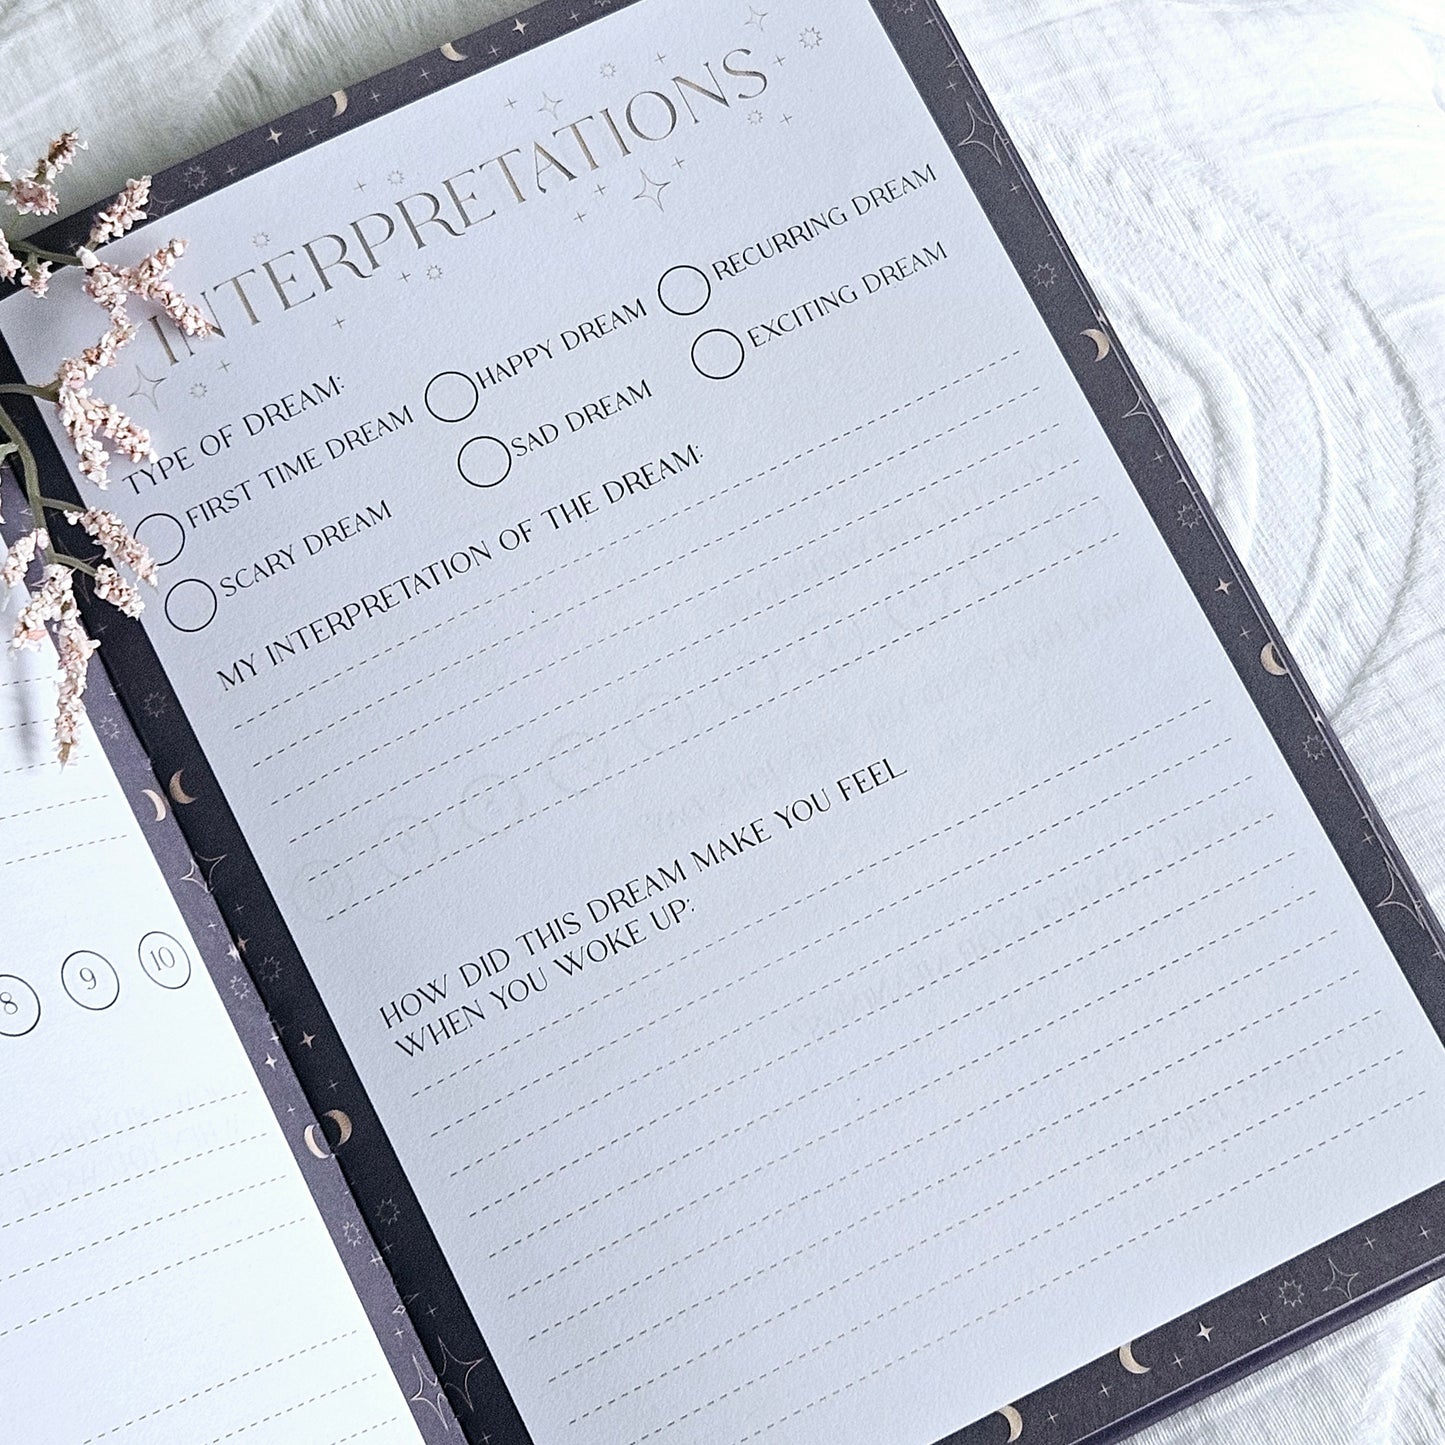 INTERPRETATIONS
TYPE OF DREAM:
FIRST TIME DREAM HAPPY DREAM RECURRING DREAM
SCARY DREAM SAD DREAM EXCITING DREAM
MY INTERPRETATION OF THE DREAM:
HOW DID THIS DREAM MAKE YOU FEEL
WHEN YOU WOKE UP:
8 9 10